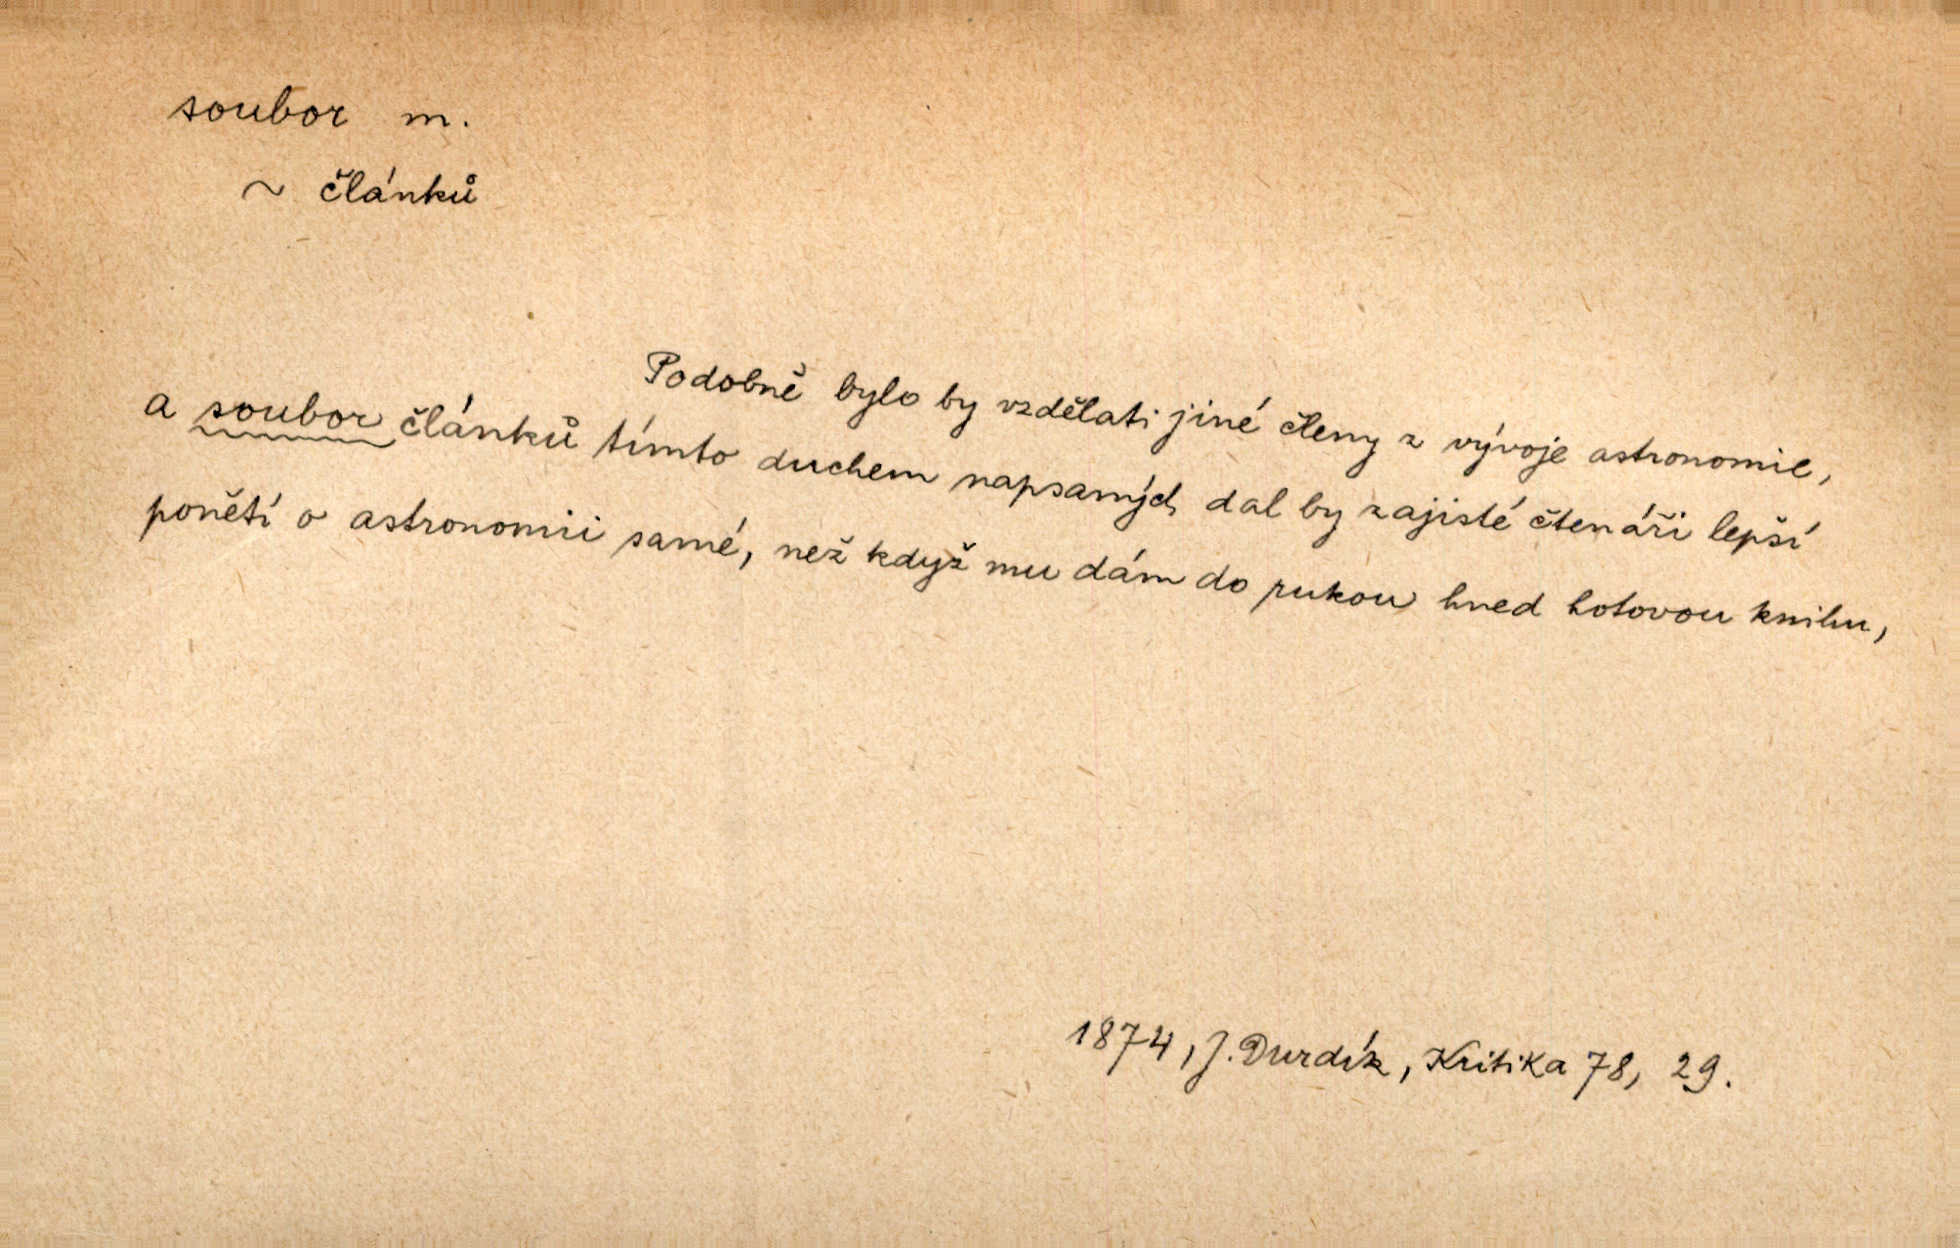 soubor m.
~ článků
Podobně bylo by vzdělati jiné členy z vývoje astronomie,
a soubor článků tímto duchem napsaných dal by zajisté čtenáři lepší
ponětí o astronomii samé, než když mu dám do rukou hned hotovou knihu,
1874, J. Durdík, Kritika 78, 29.